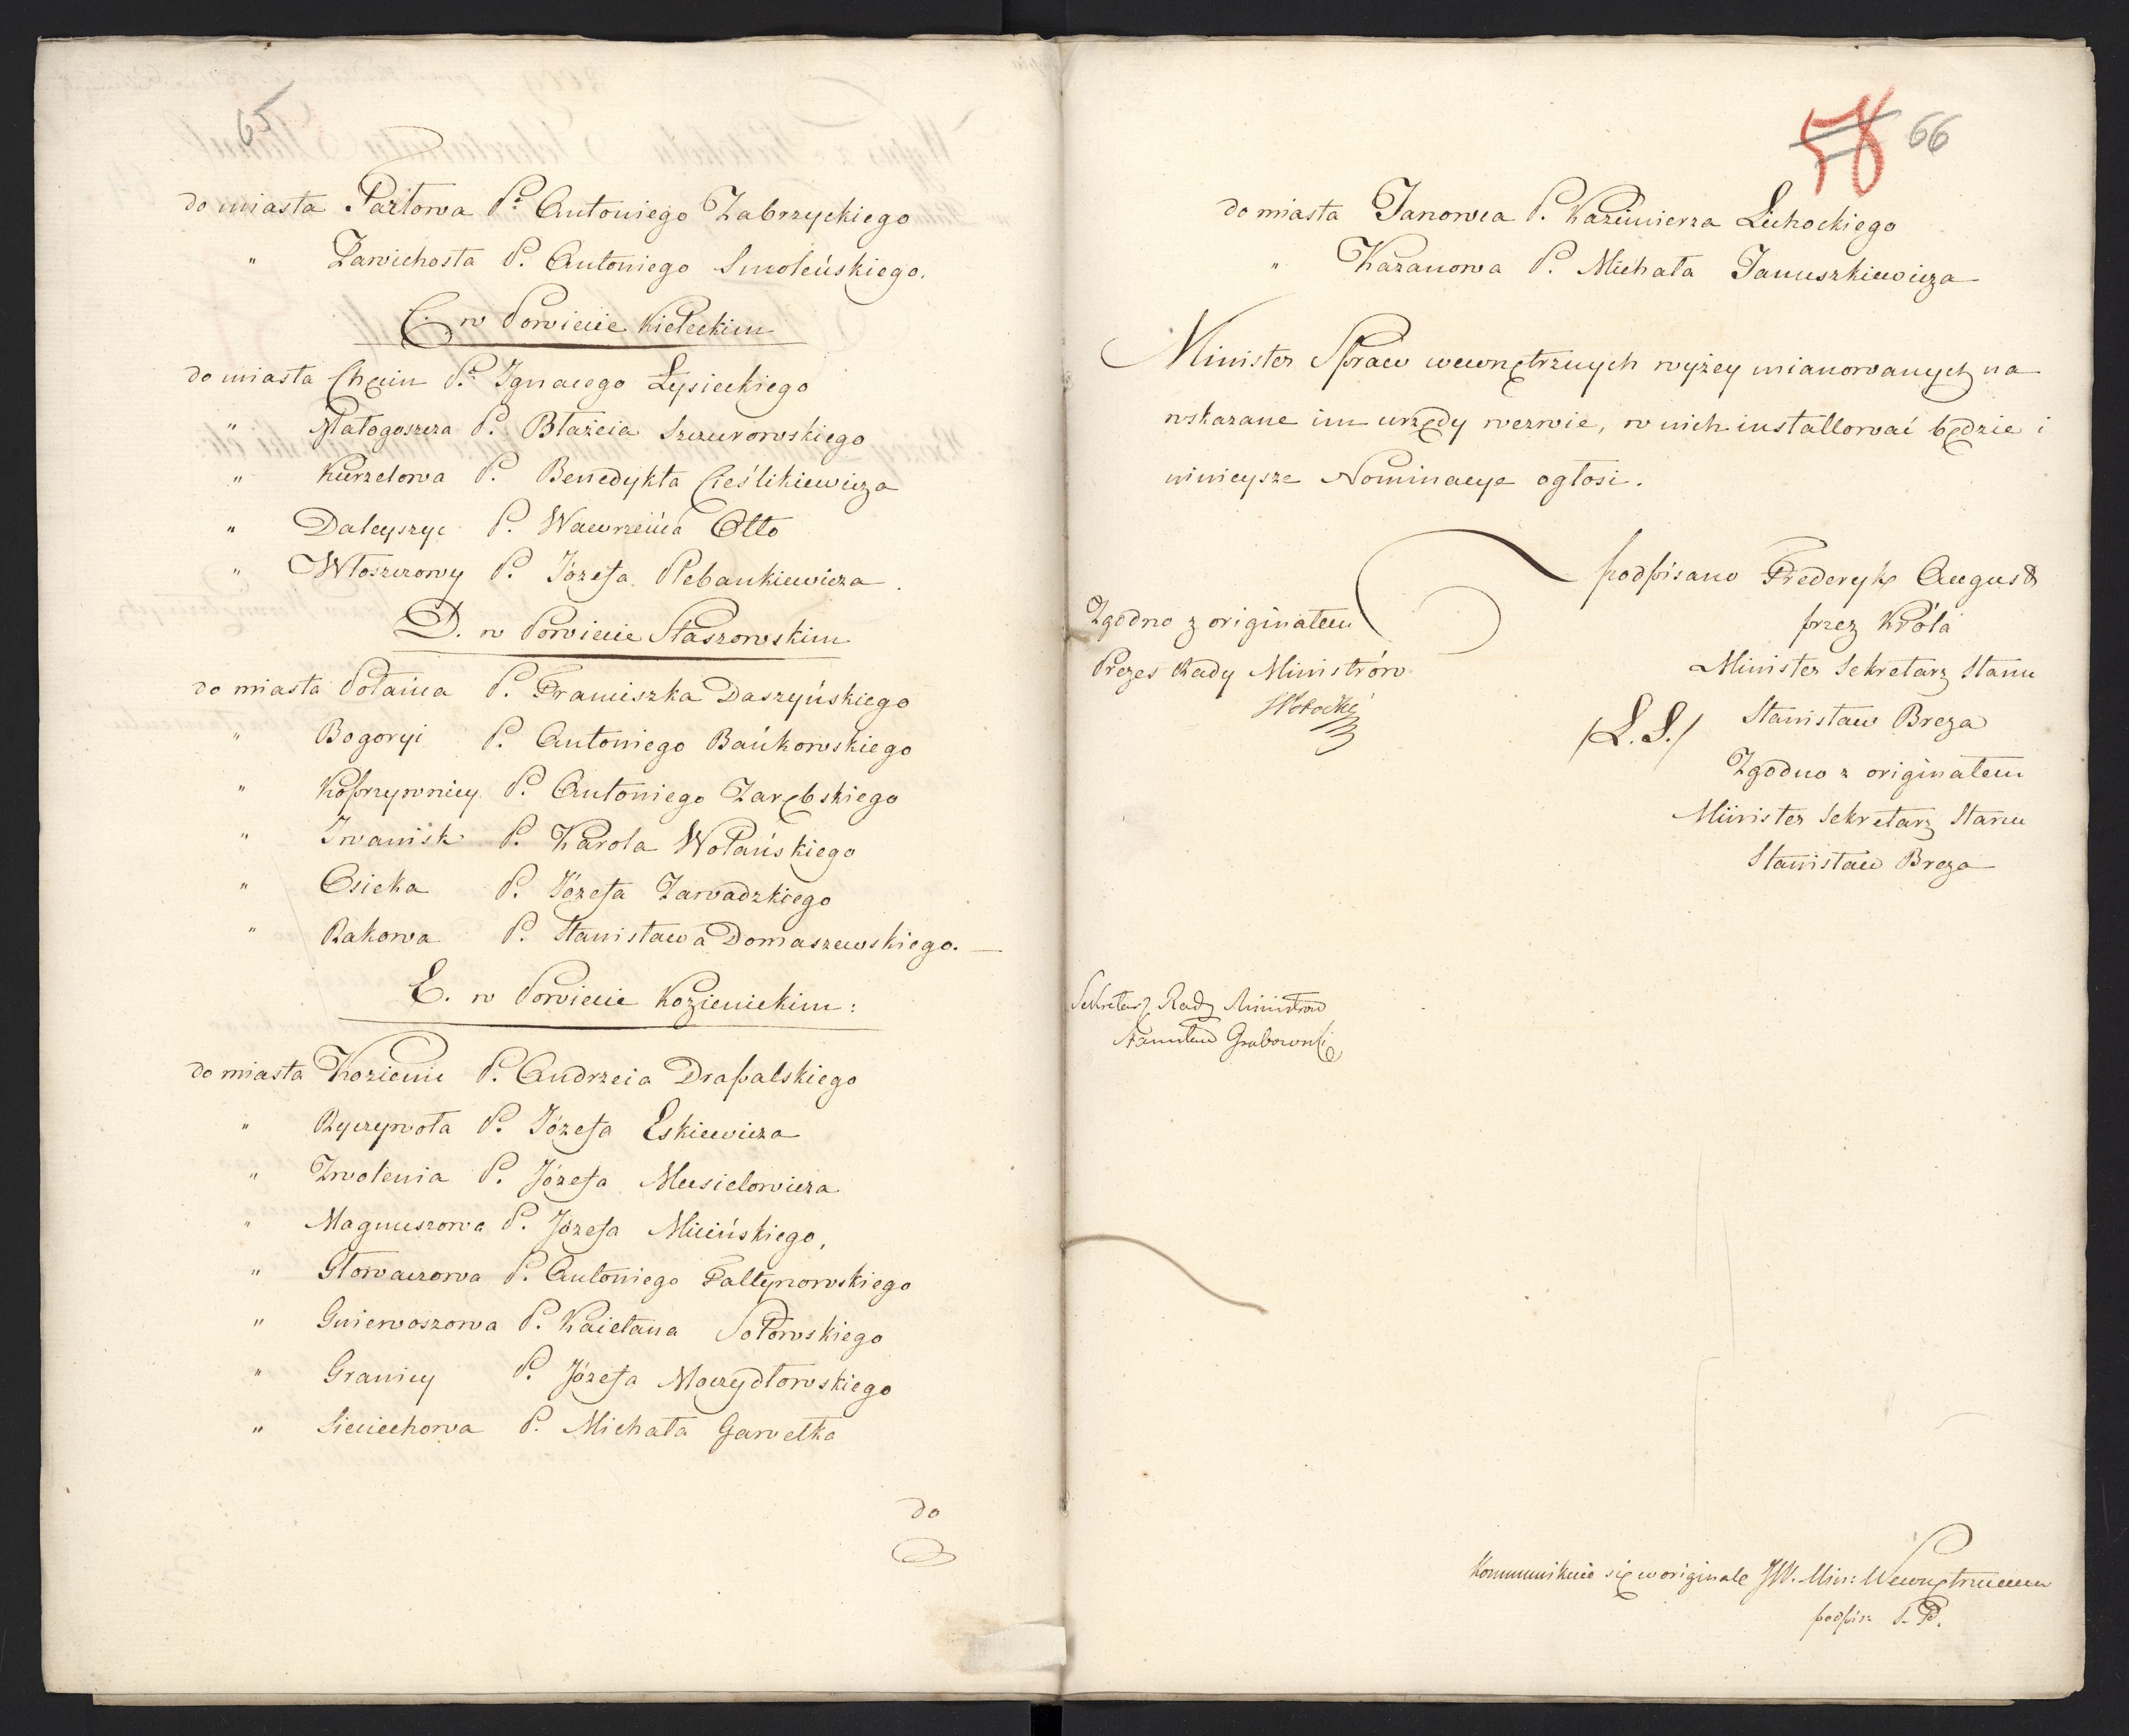 65
do miasta Parłowa P. Antoniego Zabrzyckiego
" Zawichosta P. Antoniego Smoleńskiego.
C. w Powiecie Kieleckim
do miasta Chęcin P. Ignacego Łysieckiego
" Małogoszcza P. Błażeia Szczurowskiego
" Kurzelowa P. Benedykta Cieślikiewicza
" Daleyszyc P. Wawrzeńca Otto
" Włoszczowy P. Józefa Plebankiewicza.
D. w Powiecie Staszowskim
do miasta Połańca P. Franciszka Daszyńskiego
" Bogoryi P. Antoniego Bańkowskiego
" Koprzywnicy P. Antoniego Zarębskiego
" Iwanisk P. Karola Wolańskiego
" Osieka P. Józefa Zawadzkiego
" Rakowa P. Stanisława Domaszewskiego. —
E. w Powiecie Kozienickim:
do miasta Kozienic P. Andrzeia Drapalskiego
" Ryczywoła P. Józefa Eskiewicza
" Zwolenia P. Józefa Musielowicza
" Magnuszowa P. Józefa Micińskiego,
" Głowaczowa P. Antoniego Faltynowskiego
" Gniewoszowa P. Kaietana Sołowskiego
" Granicy P. Józefa Moczydłowskiego
" Sieciechowa P. Michała Gawełka
do
58 66
do miasta Janowca P. Kazimierza Lichockiego
" Kazanowa P. Michała Januszkiewicza
Minister Spraw wewnętrznych wyżey mianowanych na
wskazane im urzędy wezwie, w nich installować będzie i
ninieysze Nominacye ogłosi.
podpisano Frederyk August
przez Króla
Minister Sekretarz Stanu
(L.S.) Stanisław Breza
Zgodno z originałem
Minister Sekretarz Stanu
Stanisław Breza
Zgodno z originałem
Prezes Rady Ministrów
Sekretarz Rady Ministrow
Stanisław Grabowski
Kommunikuie się w originale JW. Min: Wewnętrznemu
podpis: S. P.